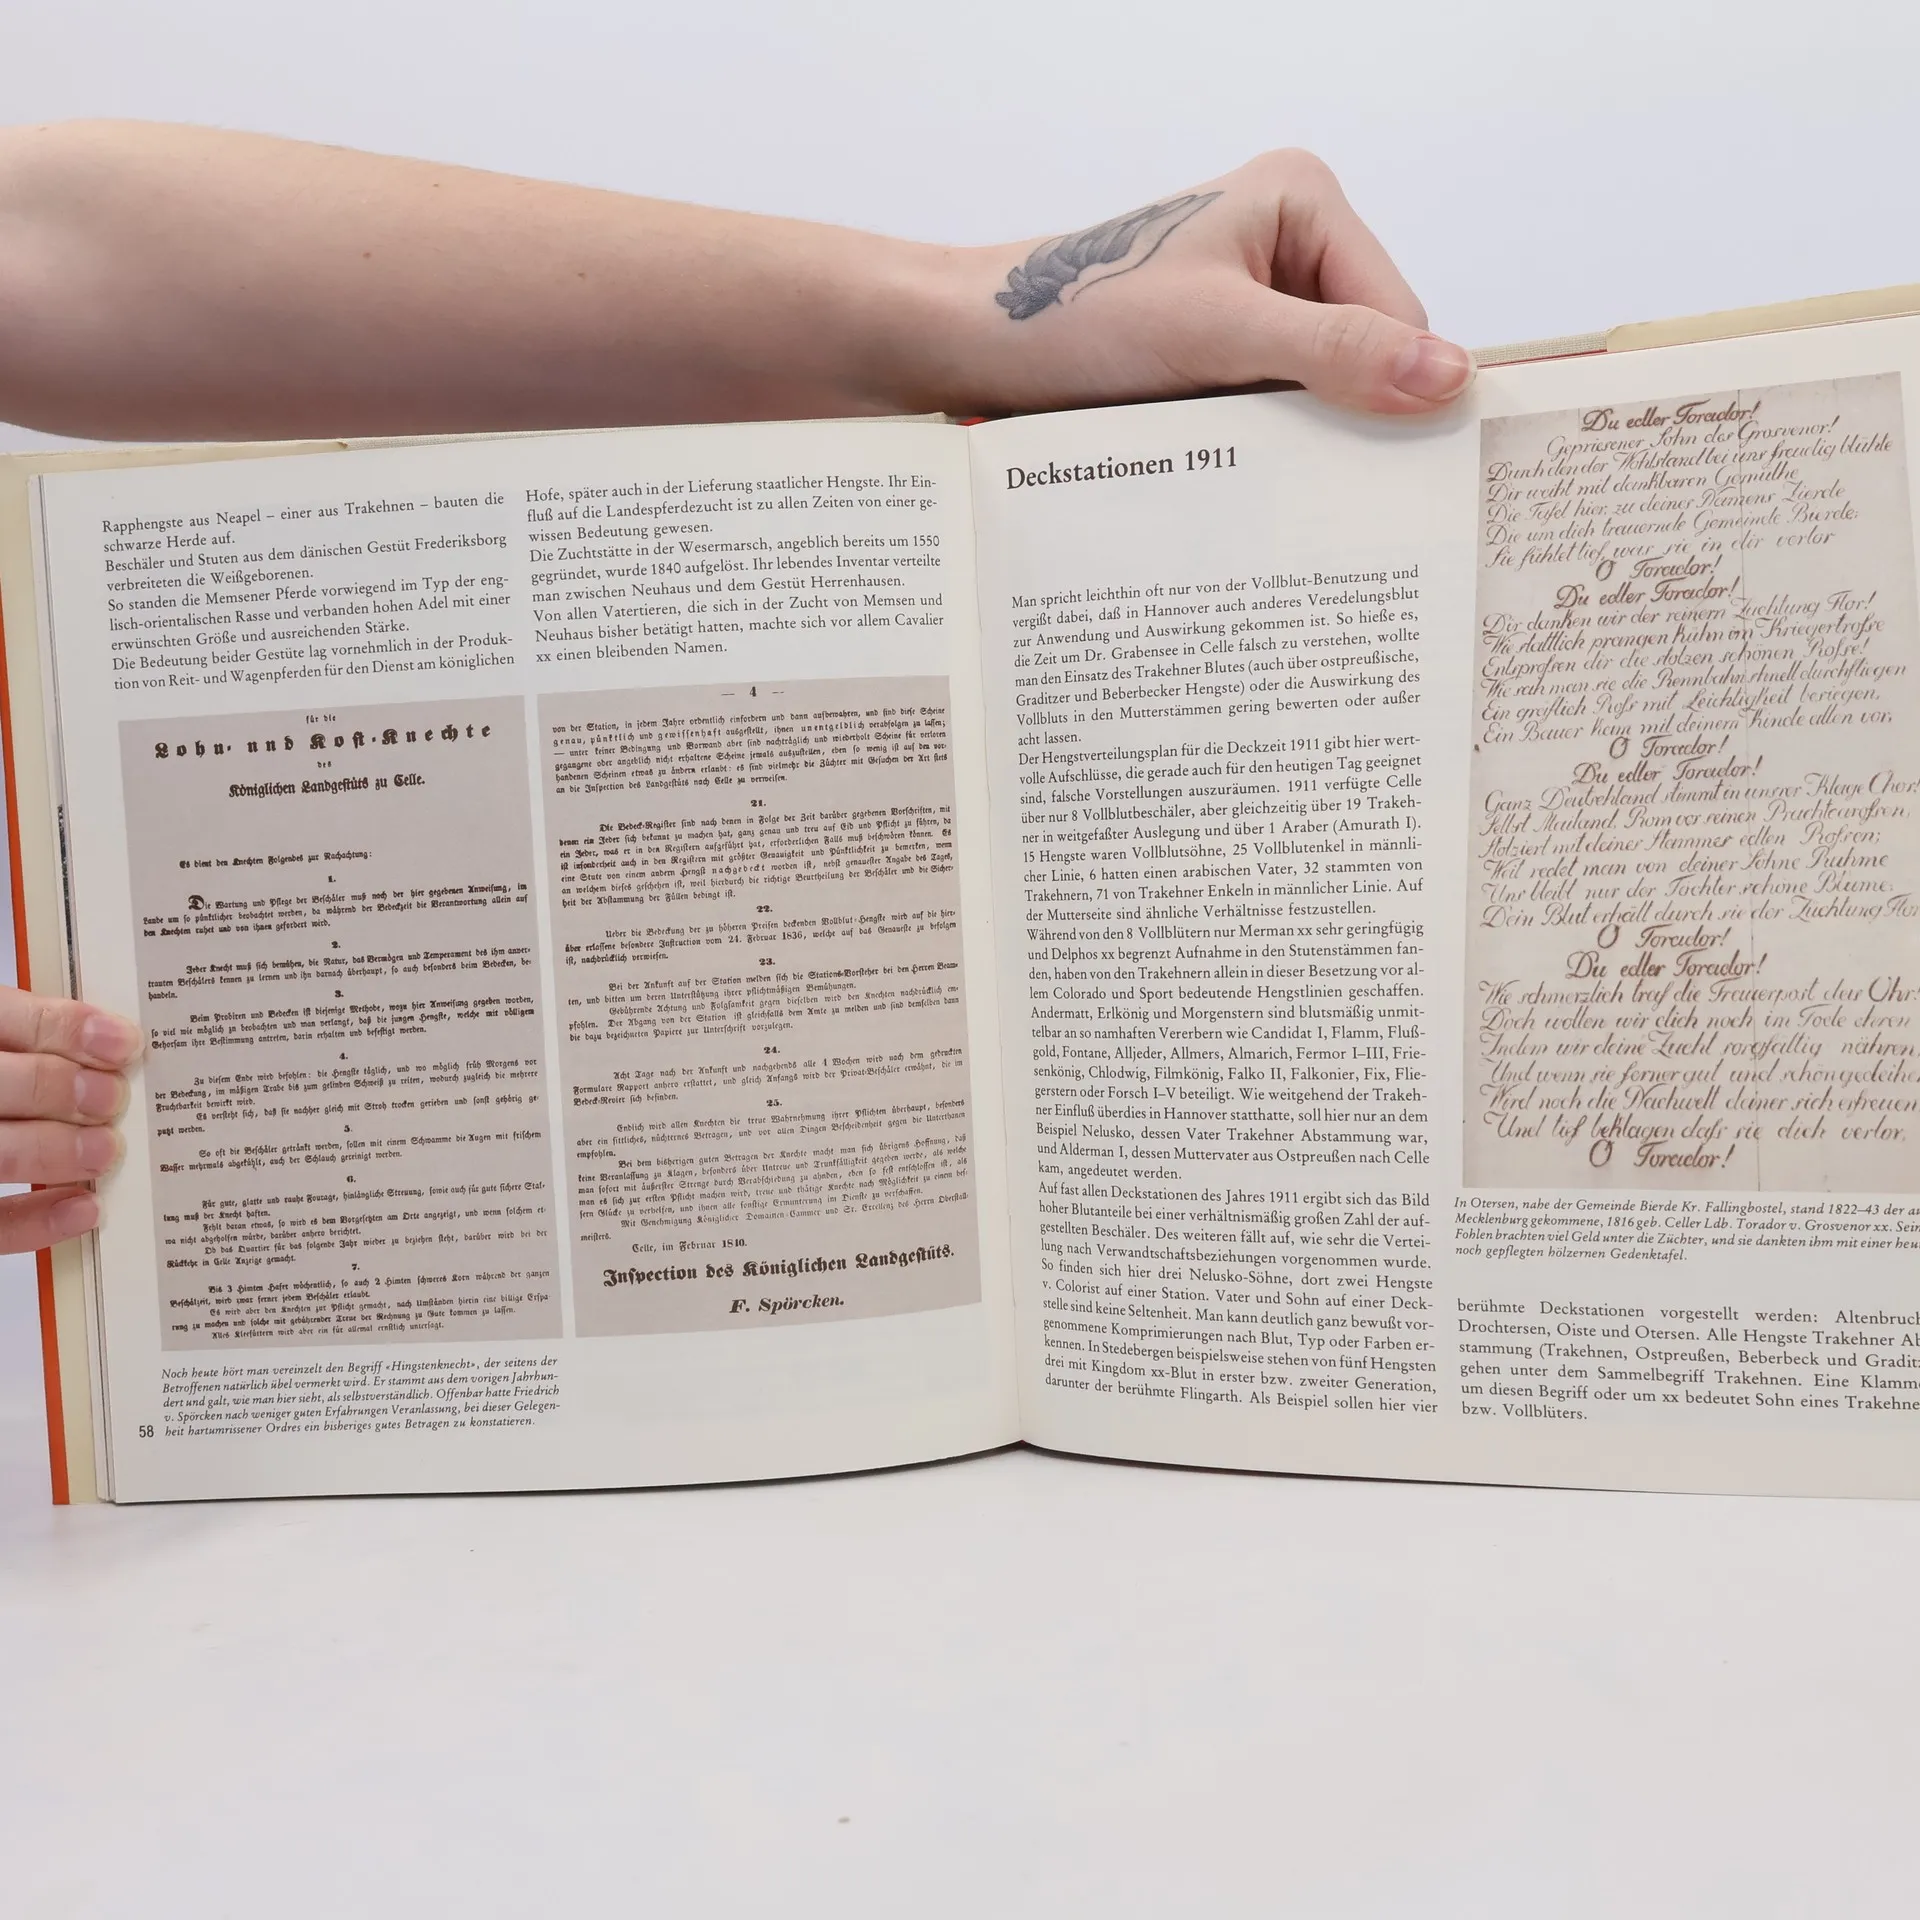 Rapphengste aus Neapel – einer aus Trakehnen – bauten die
schwarze Herde auf.
Beschäler und Stuten aus dem dänischen Gestüt Frederiksborg
verbreiteten die Weißgeborenen.
So standen die Memsener Pferde vorwiegend im Typ der eng-
lisch-orientalischen Rasse und verbanden hohen Adel mit einer
erwünschten Größe und ausreichenden Stärke.
Die Bedeutung beider Gestüte lag vornehmlich in der Produk-
tion von Reit- und Wagenpferden für den Dienst am königlichen
Hofe, später auch in der Lieferung staatlicher Hengste. Ihr Ein-
fluß auf die Landespferdezucht ist zu allen Zeiten von einer ge-
wissen Bedeutung gewesen.
Die Zuchtstätte in der Wesermarsch, angeblich bereits um 1550
gegründet, wurde 1840 aufgelöst. Ihr lebendes Inventar verteilte
man zwischen Neuhaus und dem Gestüt Herrenhausen.
Von allen Vatertieren, die sich in der Zucht von Memsen und
Neuhaus bisher betätigt hatten, machte sich vor allem Cavalier
xx einen bleibenden Namen.
für die
Lohn- und Kost-Knechte
des
Königlichen Landgestüts zu Celle.
Es dient den Knechten Folgendes zur Nachachtung:
1.
Die Wartung und Pflege der Beschäler muß nach der hier gegebenen Anweisung, im
Lande um so pünktlicher beobachtet werden, da während der Bedeckzeit die Verantwortung allein auf
den Knechten ruhet und von ihnen gefordert wird.
2.
Jeder Knecht muß sich bemühen, die Natur, das Vermögen und Temperament des ihm anver-
trauten Beschälers kennen zu lernen und ihn darnach überhaupt, so auch besonders beim Bedecken, be-
handeln.
3.
Beim Probiren und Bedecken ist diejenige Methode, wozu hier Anweisung gegeben worden,
so viel wie möglich zu beobachten und man verlangt, daß die jungen Hengste, welche mit völligem
Gehorsam ihre Bestimmung antreten, darin erhalten und befestigt werden.
4.
Zu diesem Ende wird befohlen: die Hengste täglich, und wo möglich früh Morgens vor
der Bedeckung, im mäßigen Trabe bis zum gelinden Schweiß zu reiten, wodurch zugleich die mehrere
Fruchtbarkeit bewirkt wird.
Es versteht sich, daß sie nachher gleich mit Stroh trocken gerieben und sonst gehörig ge-
putzt werden.
5.
So oft die Beschäler getränkt werden, sollen mit einem Schwamme die Augen mit frischem
Wasser mehrmals abgekühlt, auch der Schlauch gereinigt werden.
6.
Für gute, glatte und rauhe Fourage, hinlängliche Streuung, sowie auch für gute sichere Stal-
lung muß der Knecht haften.
Fehlt daran etwas, so wird es dem Vorgesetzten am Orte angezeigt, und wenn solchem et-
wa nicht abgeholfen würde, darüber anhero berichtet.
Ob das Quartier für das folgende Jahr wieder zu beziehen steht, darüber wird bei der
Rückkehr in Celle Anzeige gemacht.
7.
Bis 3 Himten Hafer wöchentlich, so auch 2 Himten schweres Korn während der ganzen
Beschälzeit, wird zwar ferner jedem Beschäler erlaubt.
Es wird aber den Knechten zur Pflicht gemacht, nach Umständen hierin eine billige Erspa-
rung zu machen und solche mit gebührender Treue der Rechnung zu Gute kommen zu lassen.
Alles Kleefüttern wird aber ein für allemal ernstlich untersagt.
— 4 —
von der Station, in jedem Jahre ordentlich einfordern und dann aufbewahren, und sind diese Scheine
genau, pünktlich und gewissenhaft ausgestellt, ihnen unentgeldlich verabfolgen zu lassen;
— unter keiner Bedingung und Vorwand aber sind nachträglich und wiederholt Scheine für verloren
gegangene oder angeblich nicht erhaltene Scheine jemals auszustellen, eben so wenig ist auf den vor-
handenen Scheinen etwas zu ändern erlaubt: es sind vielmehr die Züchter mit Gesuchen der Art stets
an die Inspection des Landgestüts nach Celle zu verweisen.
21.
Die Bedeck-Register sind nach denen in Folge der Zeit darüber gegebenen Vorschriften, mit
denen ein Jeder sich bekannt zu machen hat, ganz genau und treu auf Eid und Pflicht zu führen, da
ein Jeder, was er in den Registern aufgeführt hat, erforderlichen Falls muß beschwören können. Es
ist insonderheit auch in den Registern mit größter Genauigkeit und Pünktlichkeit zu bemerken, wenn
eine Stute von einem andern Hengst nachgedeckt worden ist, nebst genauester Angabe des Tages,
an welchem dieses geschehen ist, weil hierdurch die richtige Beurtheilung der Beschäler und die Sicher-
heit der Abstammung der Füllen bedingt ist.
22.
Ueber die Bedeckung der zu höheren Preisen deckenden Vollblut-Hengste wird auf die hier-
über erlassene besondere Instruction vom 24. Februar 1836, welche auf das Genaueste zu befolgen
ist, nachdrücklich verwiesen.
23.
Bei der Ankunft auf der Station melden sich die Stations-Vorsteher bei den Herren Beam-
ten, und bitten um deren Unterstützung ihrer pflichtmäßigen Bemühungen.
Gebührende Achtung und Folgsamkeit gegen dieselben wird den Knechten nachdrücklich em-
pfohlen. Der Abgang von der Station ist gleichfalls dem Amte zu melden und sind demselben dann
die dazu bezeichneten Papiere zur Unterschrift vorzulegen.
24.
Acht Tage nach der Ankunft und nachgehends alle 4 Wochen wird nach dem gedruckten
Formulare Rapport anhero erstattet, und gleich Anfangs wird der Privat-Beschäler erwähnt, die im
Bedeck-Revier sich befinden.
25.
Endlich wird allen Knechten die treue Wahrnehmung ihrer Pflichten überhaupt, besonders
aber ein sittliches, nüchternes Betragen, und vor allen Dingen Bescheidenheit gegen die Unterthanen
empfohlen.
Bei dem bisherigen guten Betragen der Knechte macht man sich übrigens Hoffnung, daß
keine Veranlassung zu Klagen, besonders über Untreue und Trunkfälligkeit gegeben werde, als welche
man sofort mit äußerster Strenge durch Verabschiedung zu ahnden, eben so fest entschlossen ist, als
man es sich zur ersten Pflicht machen wird, treue und thätige Knechte nach Möglichkeit zu einem bes-
sern Glücke zu verhelfen, und ihnen alle sonstige Ermunterung im Dienste zu verschaffen.
Mit Genehmigung Königlicher Domainen-Cammer und Sr. Excellenz des Herrn Oberstall-
meisters.
Celle, im Februar 1840.
Inspection des Königlichen Landgestüts.
F. Spörcken.
Noch heute hört man vereinzelt den Begriff «Hingstenknecht», der seitens der
Betroffenen natürlich übel vermerkt wird. Er stammt aus dem vorigen Jahrhun-
dert und galt, wie man hier sieht, als selbstverständlich. Offenbar hatte Friedrich
v. Spörcken nach weniger guten Erfahrungen Veranlassung, bei dieser Gelegen-
heit hartumrissener Ordres ein bisheriges gutes Betragen zu konstatieren.
58
Deckstationen 1911
Man spricht leichthin oft nur von der Vollblut-Benutzung und
vergißt dabei, daß in Hannover auch anderes Veredelungsblut
zur Anwendung und Auswirkung gekommen ist. So hieße es,
die Zeit um Dr. Grabensee in Celle falsch zu verstehen, wollte
man den Einsatz des Trakehner Blutes (auch über ostpreußische,
Graditzer und Beberbecker Hengste) oder die Auswirkung des
Vollbluts in den Mutterstämmen gering bewerten oder außer
acht lassen.
Der Hengstverteilungsplan für die Deckzeit 1911 gibt hier wert-
volle Aufschlüsse, die gerade auch für den heutigen Tag geeignet
sind, falsche Vorstellungen auszuräumen. 1911 verfügte Celle
über nur 8 Vollblutbeschäler, aber gleichzeitig über 19 Trakeh-
ner in weitgefaßter Auslegung und über 1 Araber (Amurath I).
15 Hengste waren Vollblutsöhne, 25 Vollblutenkel in männli-
cher Linie, 6 hatten einen arabischen Vater, 32 stammten von
Trakehnern, 71 von Trakehner Enkeln in männlicher Linie. Auf
der Mutterseite sind ähnliche Verhältnisse festzustellen.
Während von den 8 Vollblütern nur Merman xx sehr geringfügig
und Delphos xx begrenzt Aufnahme in den Stutenstämmen fan-
den, haben von den Trakehnern allein in dieser Besetzung vor al-
lem Colorado und Sport bedeutende Hengstlinien geschaffen.
Andermatt, Erlkönig und Morgenstern sind blutsmäßig unmit-
telbar an so namhaften Vererbern wie Candidat I, Flamm, Fluß-
gold, Fontane, Alljeder, Allmers, Almarich, Fermor I–III, Frie-
senkönig, Chlodwig, Filmkönig, Falko II, Falkonier, Fix, Flie-
gerstern oder Forsch I–V beteiligt. Wie weitgehend der Trakeh-
ner Einfluß überdies in Hannover statthatte, soll hier nur an dem
Beispiel Nelusko, dessen Vater Trakehner Abstammung war,
und Alderman I, dessen Muttervater aus Ostpreußen nach Celle
kam, angedeutet werden.
Auf fast allen Deckstationen des Jahres 1911 ergibt sich das Bild
hoher Blutanteile bei einer verhältnismäßig großen Zahl der auf-
gestellten Beschäler. Des weiteren fällt auf, wie sehr die Vertei-
lung nach Verwandtschaftsbeziehungen vorgenommen wurde.
So finden sich hier drei Nelusko-Söhne, dort zwei Hengste
v. Colorist auf einer Station. Vater und Sohn auf einer Deck-
stelle sind keine Seltenheit. Man kann deutlich ganz bewußt vor-
genommene Komprimierungen nach Blut, Typ oder Farben er-
kennen. In Stedebergen beispielsweise stehen von fünf Hengsten
drei mit Kingdom xx-Blut in erster bzw. zweiter Generation,
darunter der berühmte Flingarth. Als Beispiel sollen hier vier
Du edler Torador!
Gepriesener Sohn des Grosvenor!
Durch den der Wohlstand bei uns freudig blühte
Dir weiht mit dankbaren Gemüthe
Die Tafel hier, zu deines Namens Zierde
Die um dich trauernde Gemeinde Bierde:
Sie fühlet tief was sie in dir verlor
O Torador!
Du edler Torador!
Dir danken wir der reinern Züchtung Flor!
Wie stattlich prangen kühn im Kriegertrosse
Entsproßen dir die stolzen schönen Roße!
Wie sah man sie die Rennbahn schnell durchfliegen
Ein gräflich Roß mit Leichtigkeit besiegen,
Ein Bauer kam mit deinem Kinde allen vor,
O Torador!
Du edler Torador!
Ganz Deutschland stimmt in unsrer Klage Chor!
Selbst Mailand, Rom vor seinen Prachtcaroßen,
Stolziert mit deiner Stammer edlen Roßen;
Weil redet man von deiner Söhne Ruhme
Uns bleibt nur der Töchter schöne Blume:
Dein Blut erhält durch sie der Züchtung Flor
O Torador!
Du edler Torador!
Wie schmerzlich traf die Trauerpost das Ohr!
Doch wollen wir dich noch im Tode ehren
Indem wir deine Zucht sorgfältig nähren,
Und wenn sie ferner gut und schön gedeihen
Wird noch die Nachwelt deiner sich erfreuen
Und tief beklagen daß sie dich verlor,
O Torador!
In Otersen, nahe der Gemeinde Bierde Kr. Fallingbostel, stand 1822–43 der au
Mecklenburg gekommene, 1816 geb. Celler Ldb. Torador v. Grosvenor xx. Sein
Fohlen brachten viel Geld unter die Züchter, und sie dankten ihm mit einer heu
noch gepflegten hölzernen Gedenktafel.
berühmte Deckstationen vorgestellt werden: Altenbruch
Drochtersen, Oiste und Otersen. Alle Hengste Trakehner Ab
stammung (Trakehnen, Ostpreußen, Beberbeck und Graditz
gehen unter dem Sammelbegriff Trakehnen. Eine Klamme
um diesen Begriff oder um xx bedeutet Sohn eines Trakehne
bzw. Vollblüters.